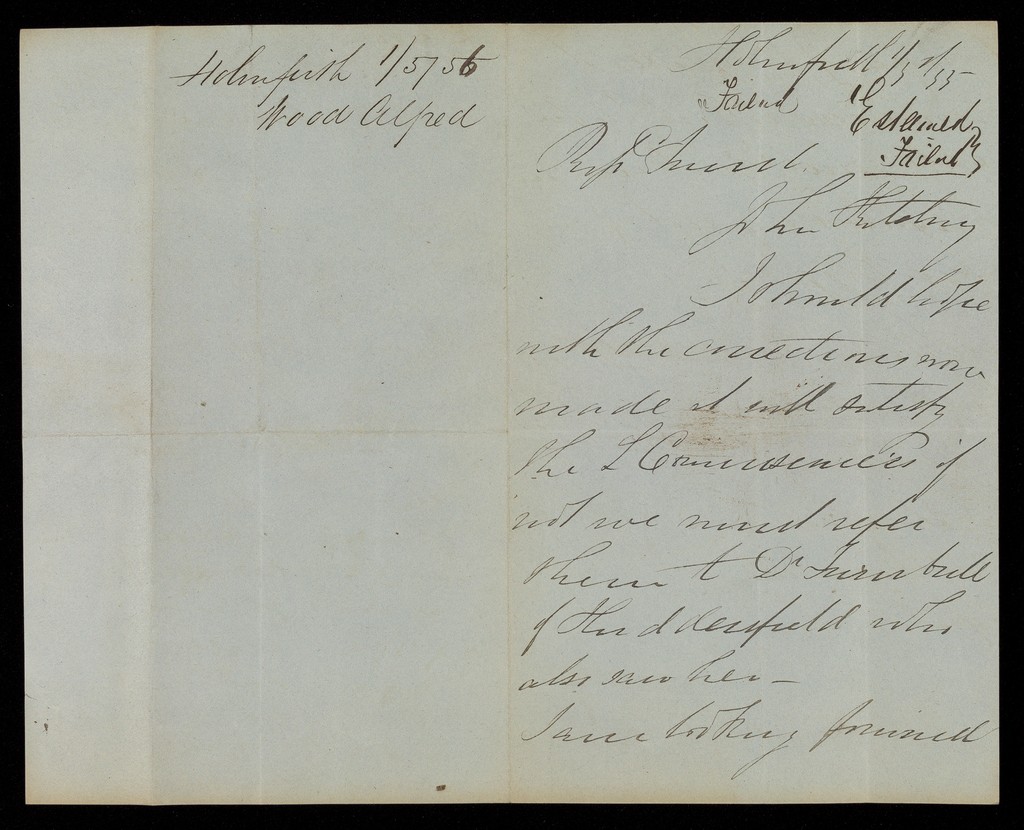 Holmfirth 1/5/56
Wood Alfred
Holmfirth 1/5/55
Friend
Esteemed
Friend
Resp.d Friend.
John Kitching
I should hope
with the corrections now
made it will satisfy
the L Commissioners if
not we must refer
them to Dr Turnbull
of Huddersfield who
also saw her —
I am looking forward